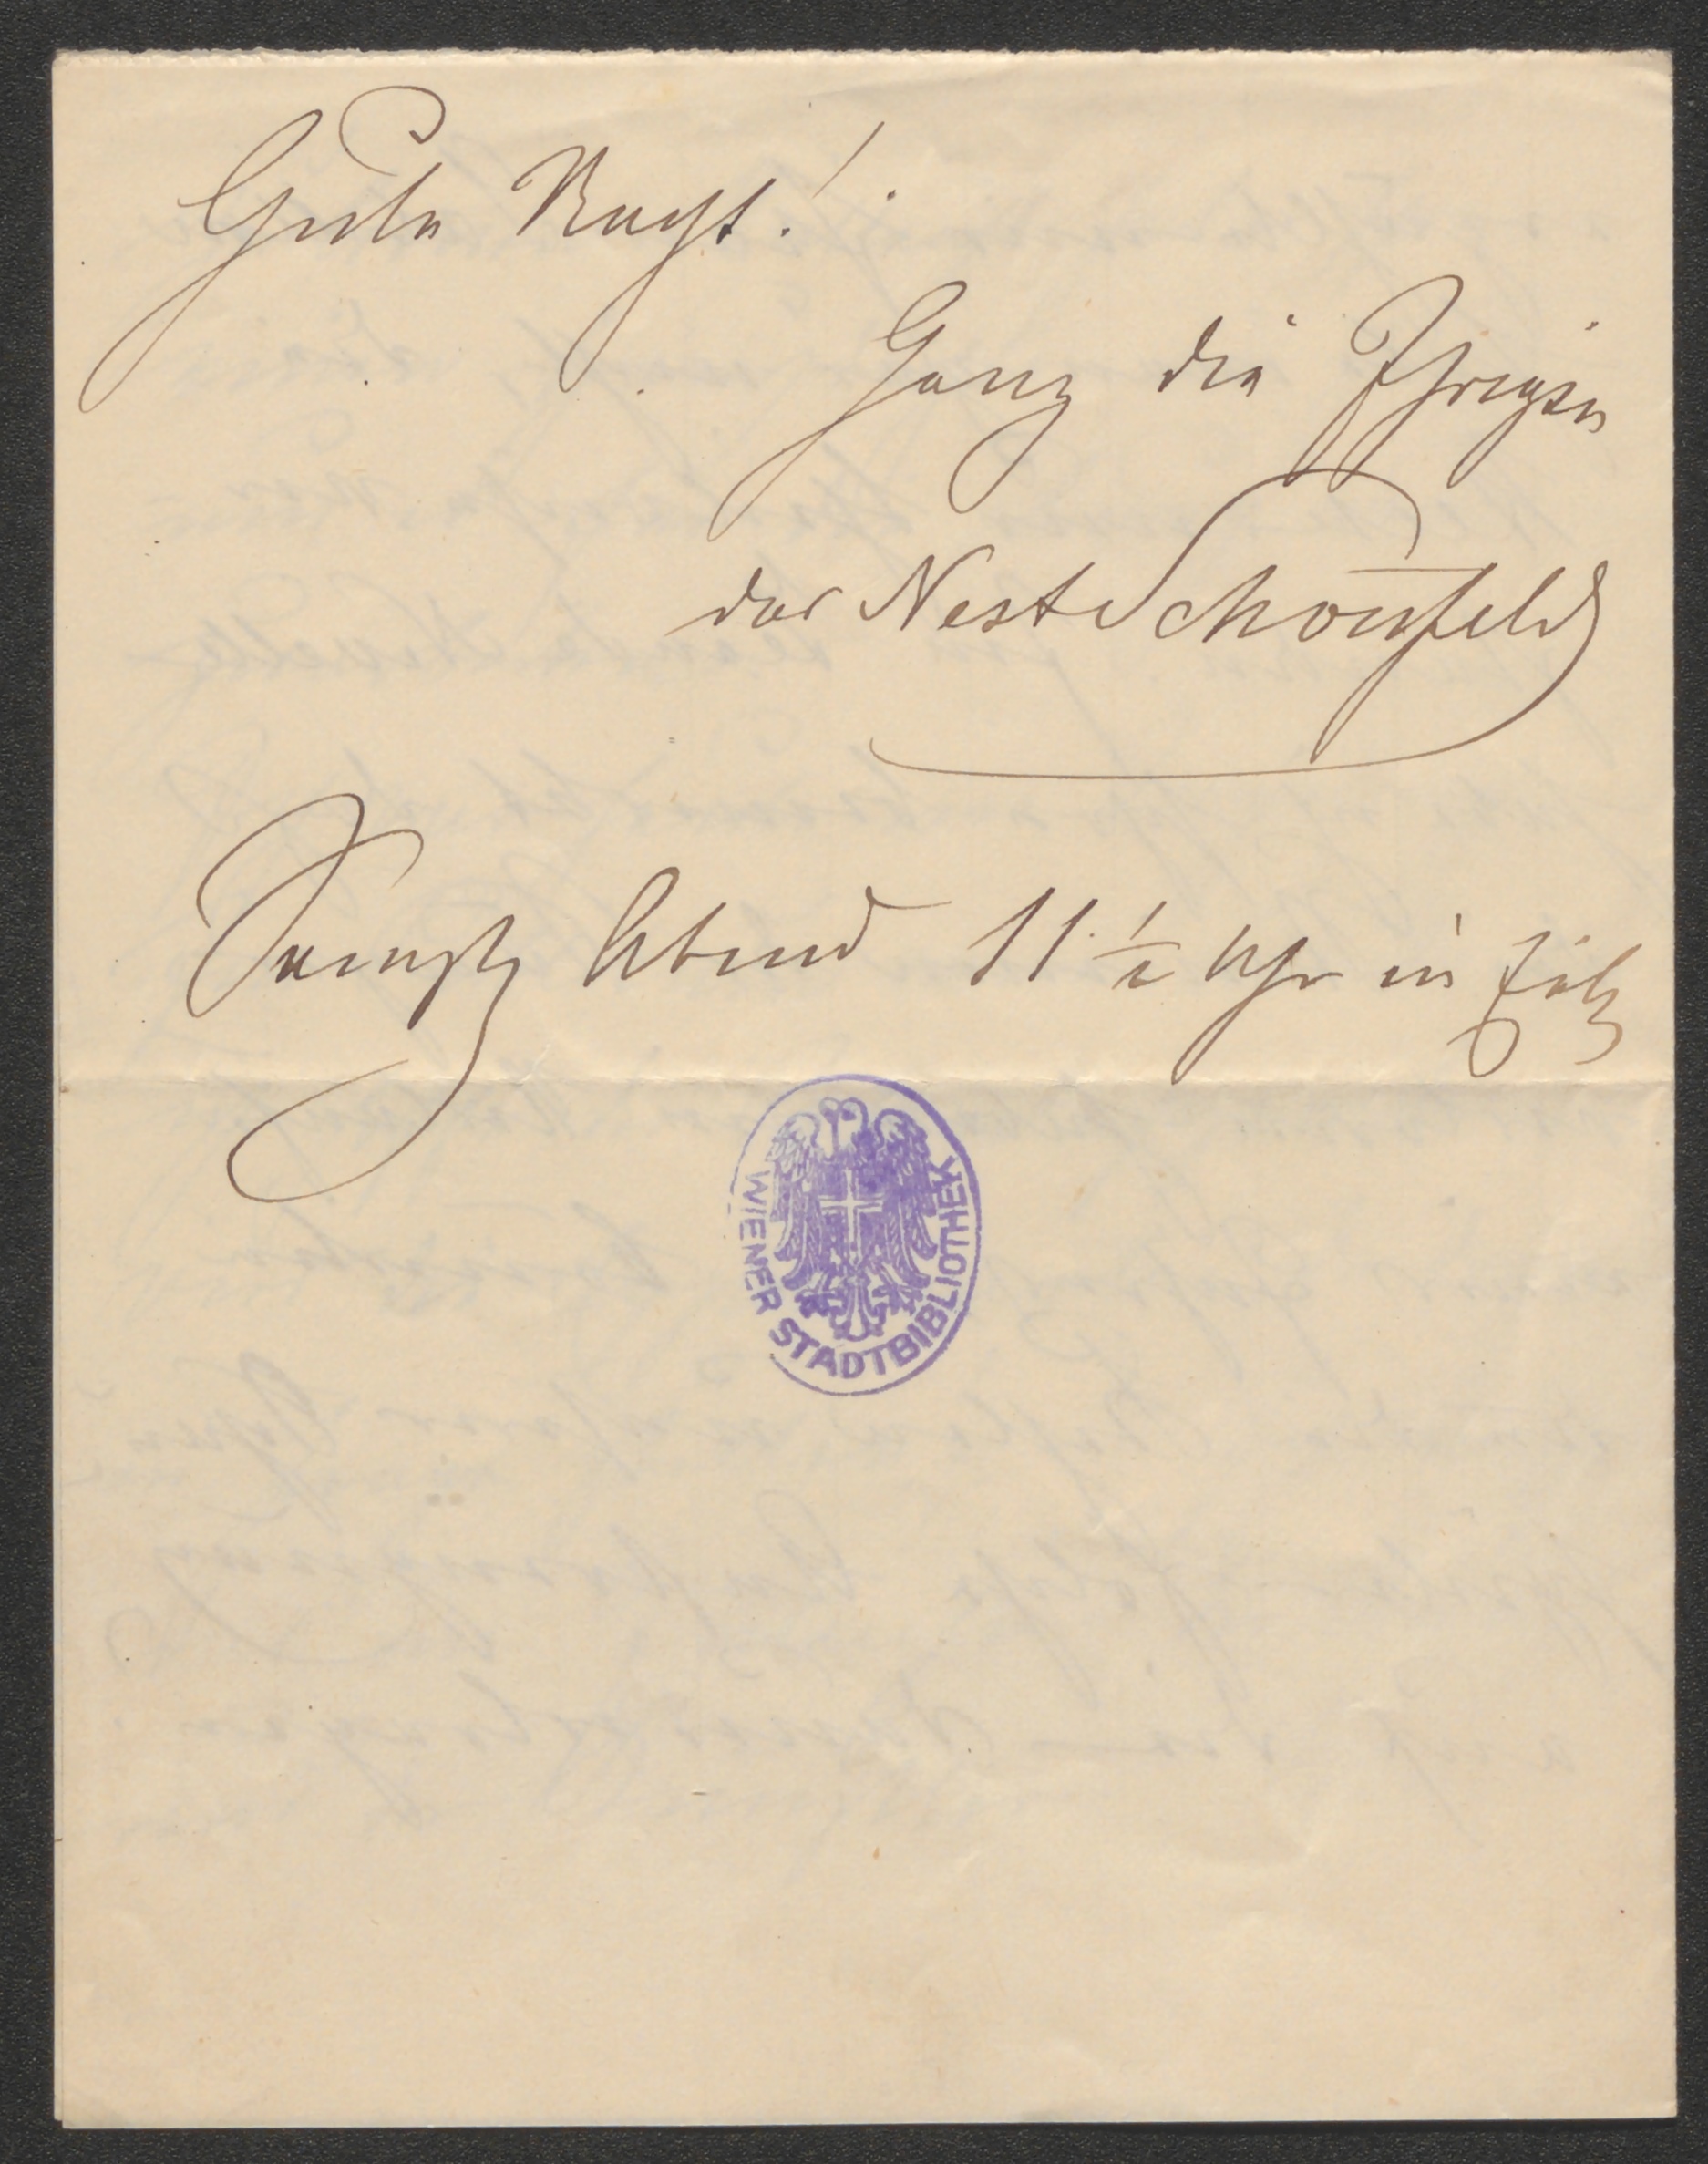 Gute Nacht!
Ganz die Ihrigen
das Nest Schönfeld
Samstg Abend 11 ½ Uhr in Eile
WIENER STADTBIBLIOTHEK